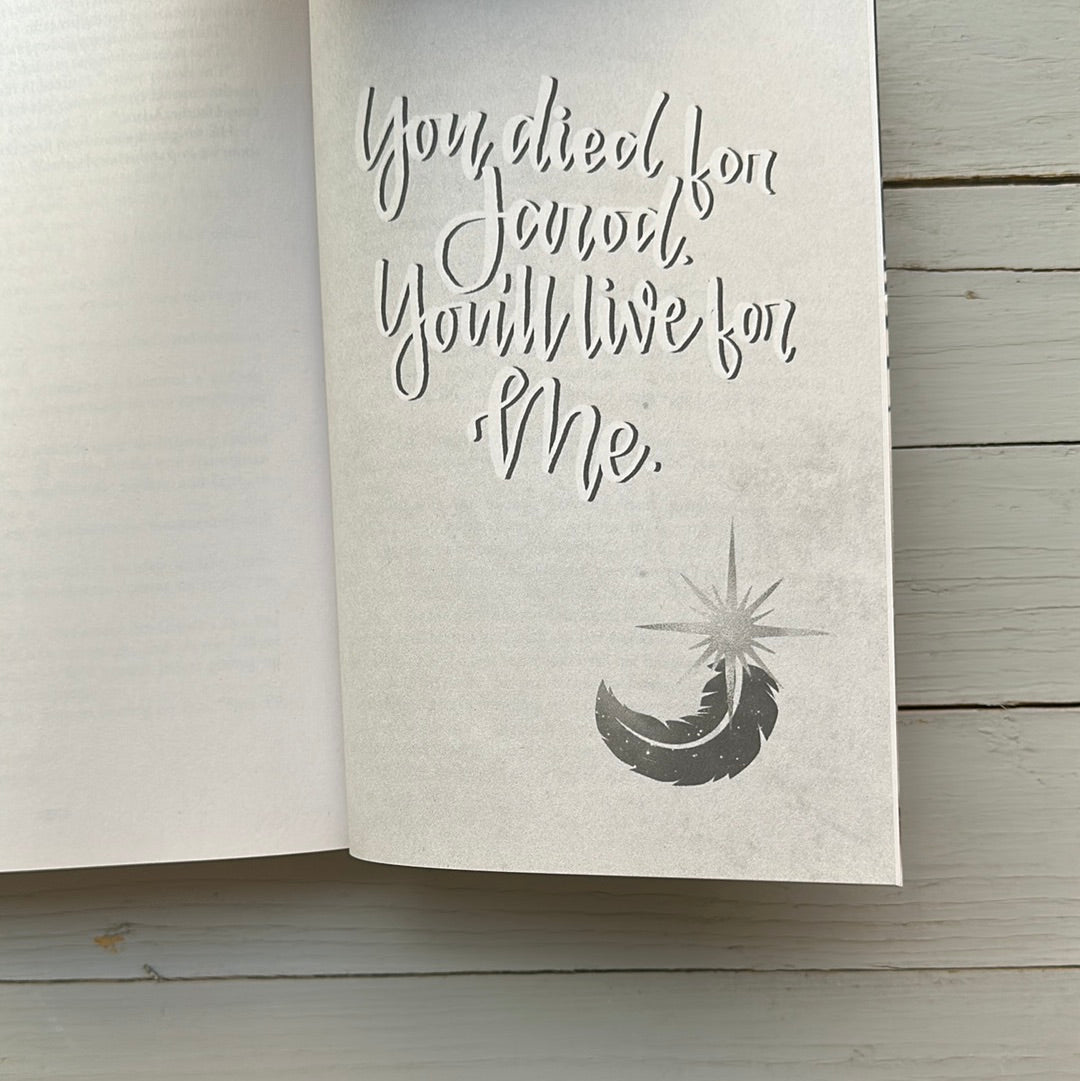 You died for
Jarod.
You'll live for
Me.